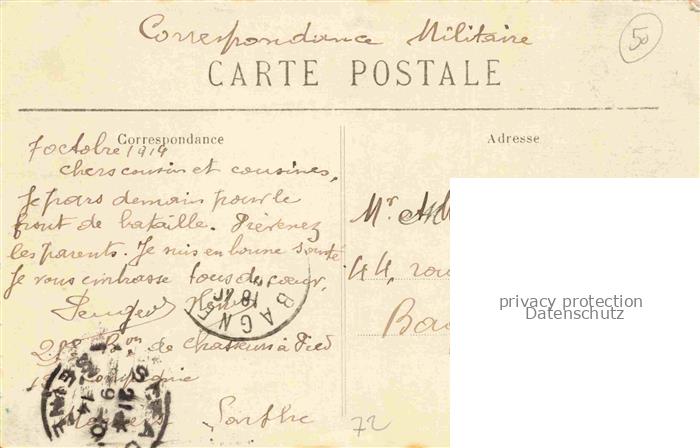 Correspondance Militaire
50
CARTE POSTALE
Correspondance
Adresse
7 octobre 1914
chers cousin et cousines,
Je pars demain pour le
front de bataille. Prévenez
les parents. Je suis en bonne santé
Je vous embrasse tous de cœur,
de chasseurs à Pied
Compagnie
Sarthe
72
Mr
44, rou
Ba
privacy protection
Datenschutz
BAGNE
18